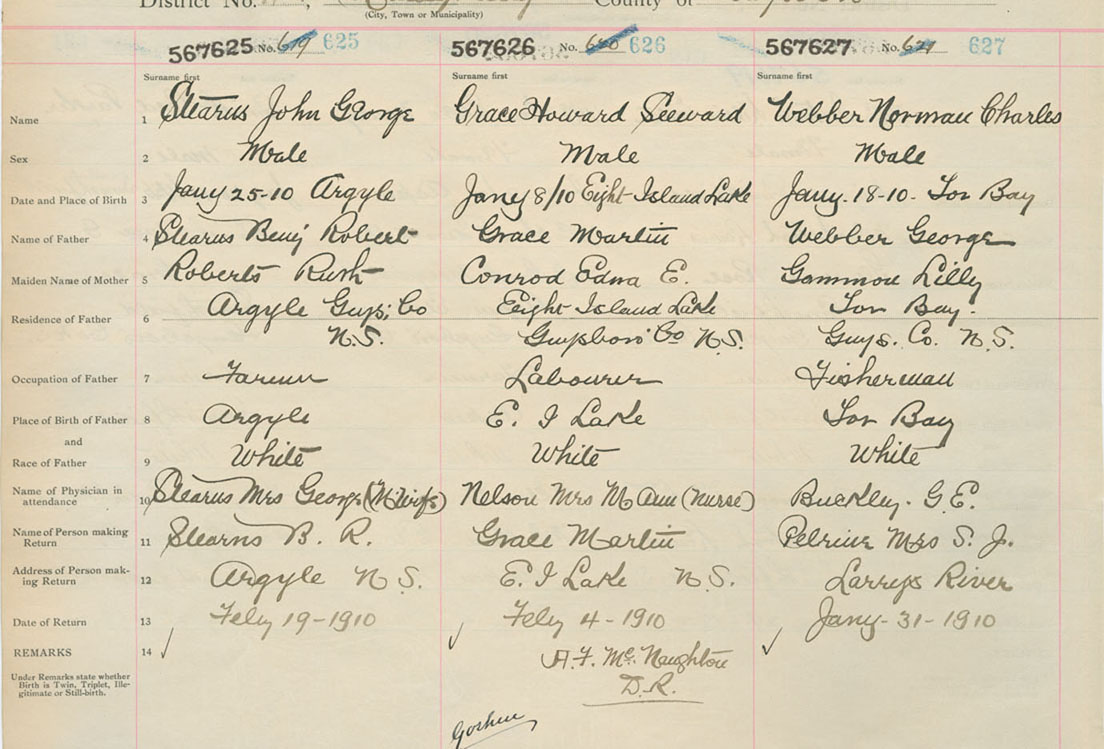 District No. County of
(City, Town or Municipality)
567625 No. 619 625 567626 No. 620 626 567627 No. 621 627
Surname first Surname first Surname first
Name 1 Stearns John George Grace Howard Seeward Webber Norman Charles
Sex 2 Male Male Male
Date and Place of Birth 3 Jany 25-10 Argyle Jany 8/10 Eight Island Lake Jany. 18-10- Tor Bay
Name of Father 4 Stearns Benj Robert Grace Martin Webber George
Maiden Name of Mother 5 Roberts Ruth Conrod Edna E. Gammon Lilly
Residence of Father 6 Argyle Guys; Co Eight Island Lake Tor Bay.
N.S. Guysboro Co N.S. Guys. Co. N.S.
Occupation of Father 7 Farmer Labourer Fisherman
Place of Birth of Father 8 Argyle E. I Lake Tor Bay
and
Race of Father 9 White White White
Name of Physician in attendance 10 Stearns Mrs George (Midwife) Nelson Mrs M Ann (Nurse) Buckley. G.E.
Name of Person making Return 11 Stearns B. R. Grace Martin Pelrine Mrs S. J.
Address of Person making Return 12 Argyle N S. E. I Lake N S. Larrys River
Date of Return 13 Feby 19-1910 Feby 4-1910 Jany-31-1910
REMARKS 14 A. F. McNaughton
Under Remarks state whether Birth is Twin, Triplet, Illegitimate or Still-birth. D.R.
Goshen